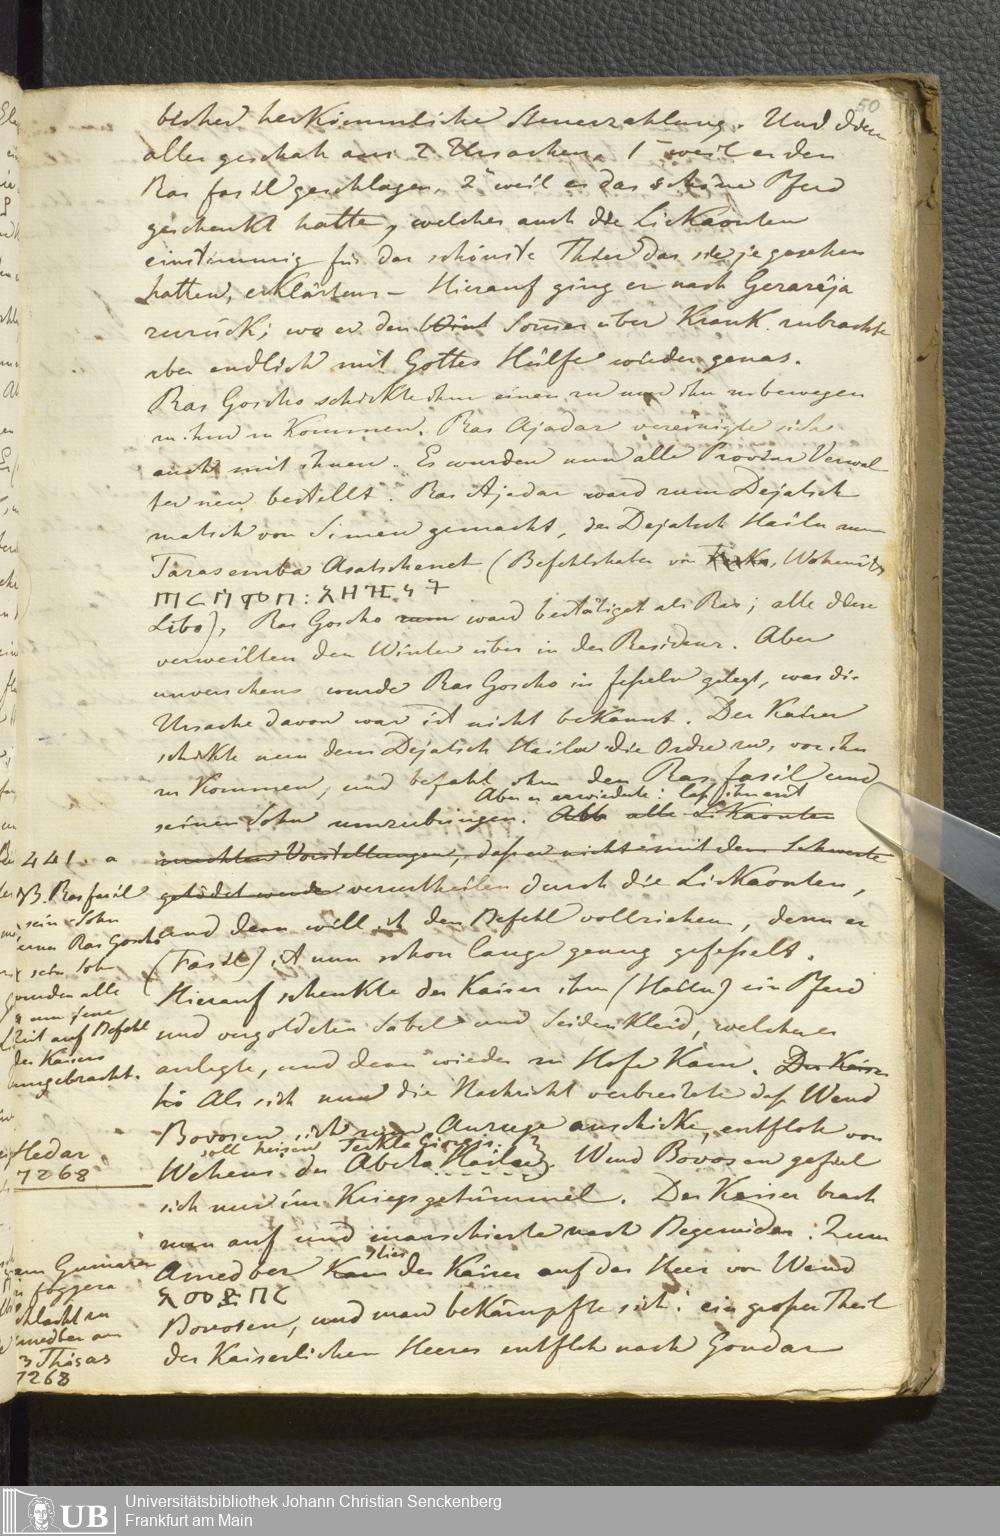 50
bisher herkömmliche Steuerzahlung. Und dieses
alles geschah aus 2 Ursachen. 1 weil er den
Ras fasil geschlagen, 2 weil er das schöne Pferd
geschenkt hatte, welches auch die Lickaonten
einstimmig für das schönste Thier das sie je gesehen
hatten, erklärten – Hierauf ging er nach Gerarêja
zurück; wo er den Wint Somer über Krank zubrachte
aber endlich mit Gottes Hülfe wieder genas.
Ras Goscho schickte ihm einen zu und ihn zu bewegen
zu ihm zu Kommen. Ras Ajadar vereinigte sich
auch mit ihnen. Es wurden nun alle Provinz Verwal
ter neu bestellt. Ras Ajadar ward zum Dejatsch
matsch von Simen gemacht, der Dejatsch Hailu zum
Tarasemba Asatschenet (Befehlshaber von Wohenito
Libo), Ras Goscho zum ward bestätiget als Ras; alle diese
verweilten den Winter über in der Residenz. Aber
unversehens wurde Ras Goscho in feßeln gelegt, was die
Ursache davon war ist nicht bekannt. Der Kaiser
schikte nun dem Dejatsch Hailu die Ordre zu, vor ihn
zu Kommen, und befahl ihm den Ras fasil und
Aber er erwiederte: laß ihn erst
seinen Sohn umzubringen. Abb alle Likaonten
machten Vorstellungen, daß er nicht mit dem Schwerte
getödet werde verurtheilen durch die Lickaonten,
und dann will ich den Befehl vollziehen, denn er
(Fasil) ist nun schon lange genug gefeßelt.
Hierauf schenkte der Kaiser ihm (Hailu) ein Pferd
und vergoldeten Säbel und Seiden Kleid, welches er
anlegte, und dann wieder zu Hofe Kam. Der Kaiser
Als sich nun die Nachricht verbreitete daß Wend
Bovosen sich zum Anzuge anschicke, entfloh von
soll heisen Teckla Giorgis
Wehens der Abeta Hailu. Wend Bovosen gefiel
sich nur im Kriegsgetümmel. Der Kaiser brach
nun auf und marschierte nach Begemider. Zum
sties
Amedber Kam der Kaiser auf das Heer von Wend
አመድበር
Bovosen, und man bekämpfte sich: ein großer Theil
des Kaiserlichen Heeres entfloh nach Gondar
441. a
NB. Ras fasil
sein Sohn
Ras Goscho
sein Sohn
wurden alle
um jene
Zeit auf Befehl
des Kaisers
umgebracht.
Hedar
7268
Gumara
foggera
Schlacht zu
Amedber am
3 Thäsas
7268
Universitätsbibliothek Johann Christian Senckenberg
Frankfurt am Main
UB